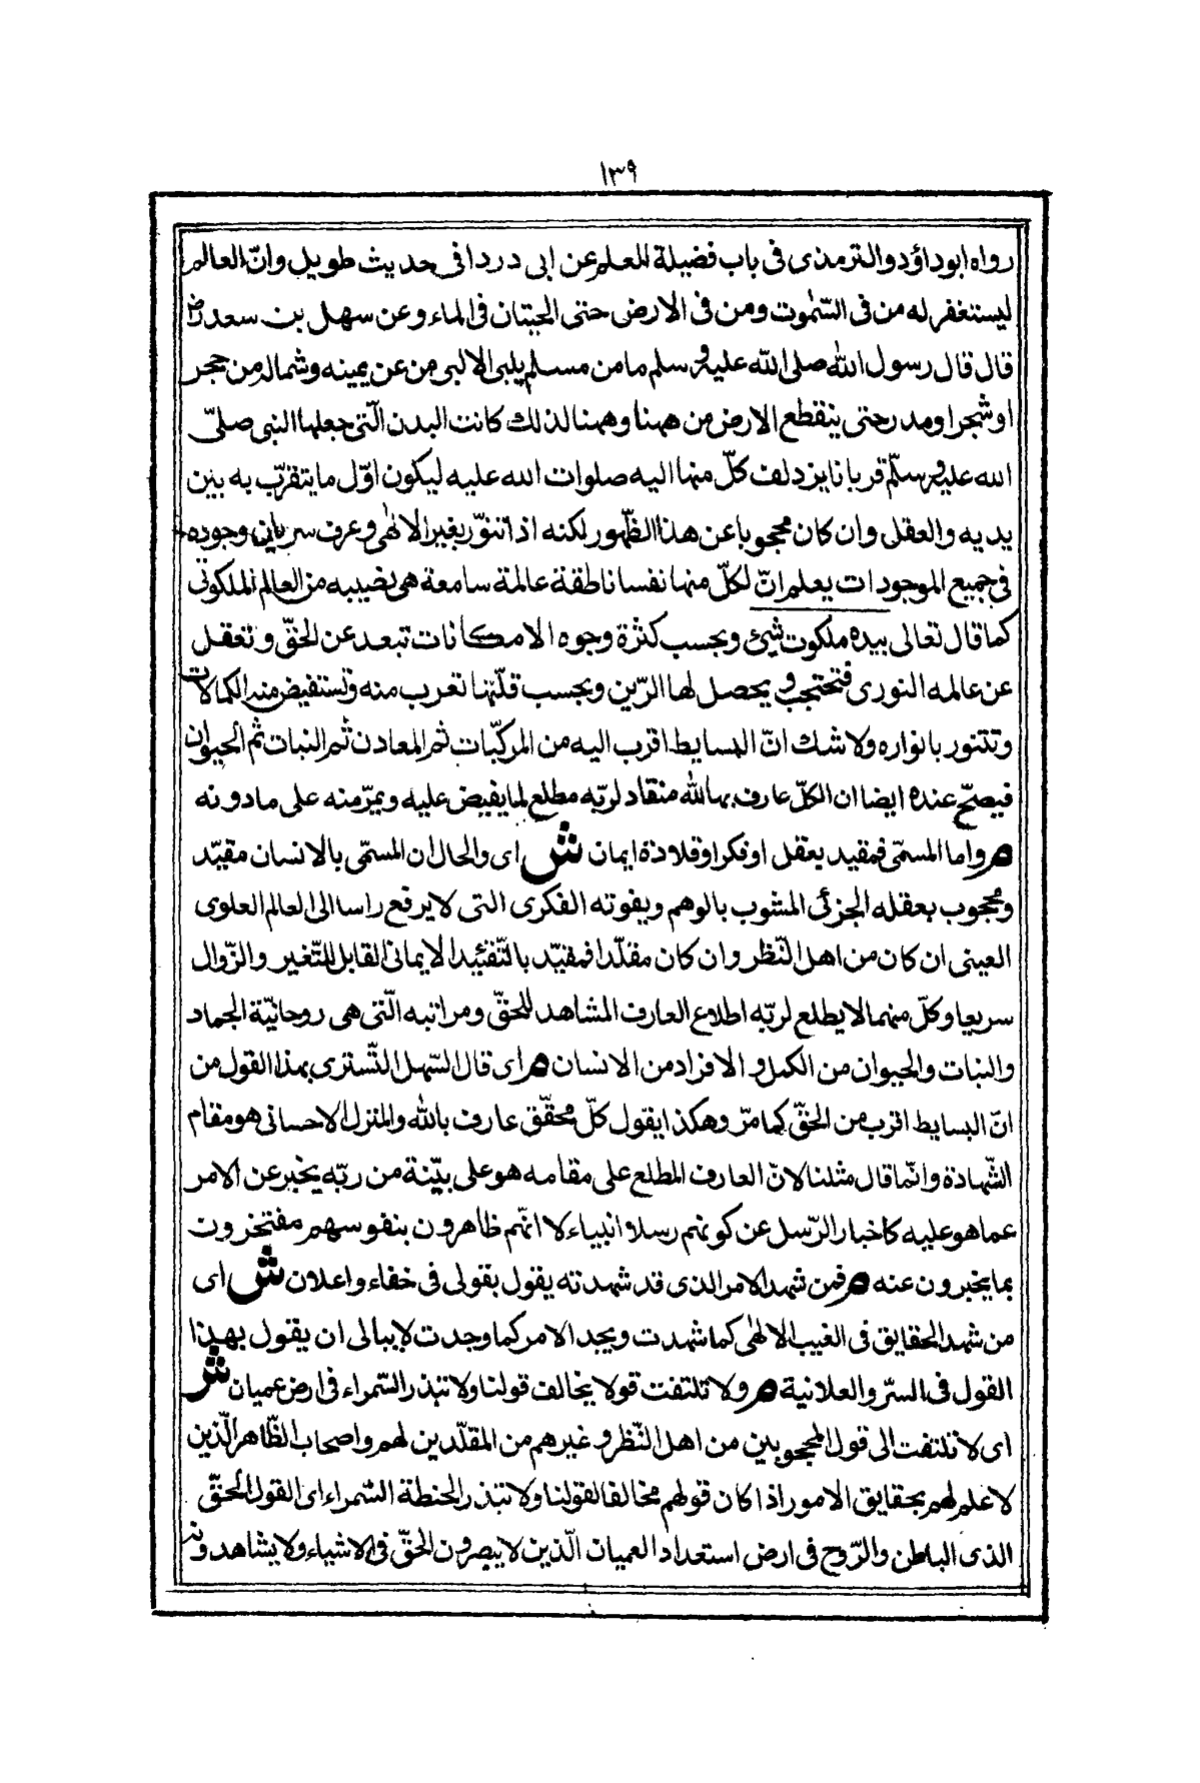 ١٣٩
رواه ابوداؤد والترمذى فى باب فضيلة المعلم عن ابى دردا فى حديث طويل وانّ العالم
ليستغفر له من فى السّمٰوت ومن فى الارض حتى الحيتان فى الماء وعن سهل بن سعد رض
قال قال رسول الله صلى الله عليه وسلم ما من مسلم يلبى الا لبى من عن يمينه وشماله من حجر
او شجر او مدر حتى ينقطع الارض من ههنا وههنا لذلك كانت البدن الّتى جعلها النبى صلىّ
الله عليه وسلّم قربانا يزدلف كلّ منها اليه صلوات الله عليه ليكون اوّل ما يتقرّب به بين
يديه والعقل وان كان محجوبا عن هذا الظّهور لكنه اذا تنوّر بغير الالهٰى وعرف سريان وجوده
فى جميع الموجودات يعلم انّ لكلّ منها نفسا ناطقة عالمة سامعة هى نصيبه من العالم الملكوتى
كما قال تعالى بيده ملكوت شئ وبحسب كثرة وجوه الامكانات تبعد عن الحقّ وتعقل
عن عالمه النورى فتحتجب ويحصل لها الرّين وبحسب قلّتها تعرب منه وتستفيض منه الكمالات
وتتنور بانواره ولا شك انّ البسايط اقرب اليه من المركّبات ثم المعادن ثم النبات ثم الحيوان
فيصحّ عنده ايضا ان الكلّ عارف بالله منقاد لربّه مطلع لما يفيض عليه ويمرّ منه على ما دونه
م واما المسمّى فمقيد بعقل او فكر او قلادة ايمان ش اى والحال ان المسمّى بالانسان مقيّد
ومحجوب بعقله الجزئى المشوب بالوهم وبفوته الفكرى التى لا يرفع راسا الى العالم العلوى
العينى ان كان من اهل النّظر وان كان مقلّدا فمقيّد بالتّقئيد الايمانى القابل للتّغير والزّوال
سريعا وكلّ منهما لا يطلع لربّه اطلاع العارف المشاهد للحقّ ومراتبه الّتى هى روحانيّة الجماد
والنبات والحيوان من الكمل والافراد من الانسان م اى قال السّهل التّسترى بهذا القول من
انّ البسايط اقرب من الحقّ كما مرّ وهكذا يقول كلّ محقّق عارف بالله والمنزل الاحسانى هو مقام
الشّهادة وانّما قال مثلنا لانّ العارف المطلع على مقامه هو على بيّنة من ربّه يخبر عن الامر
عما هو عليه كاخبار الرّسل عن كونهم رسلا وانبياء لا انّهم ظاهرون بنفوسهم مفتخرون
بما يخبرون عنه م فمن شهد الامر الذى قد شهدته يقول بقولى فى خفاء واعلان ش اى
من شهد الحقايق فى الغيب الالهٰى كما شهدت ويجد الامر كما وجدت لا يبالى ان يقول بهذا
القول فى السرّ والعلانية م ولا تلتفت قولا يخالف قولنا ولا تبذر السّمراء فى ارض عميان ش
اى لا تلتفت الى قول المحجوبين من اهل النّظر وغيرهم من المقلّدين لهم واصحاب الظّاهر الّذين
لا علم لهم بحقايق الامور اذا كان قولهم مخالفا لقولنا ولا تبذر الحنطة السّمراء اى القول الحقّ
الذى الباطن والرّوح فى ارض استعداد العميان الّذين لا يبصرون الحقّ فى الاشياء ولا يشاهدونه